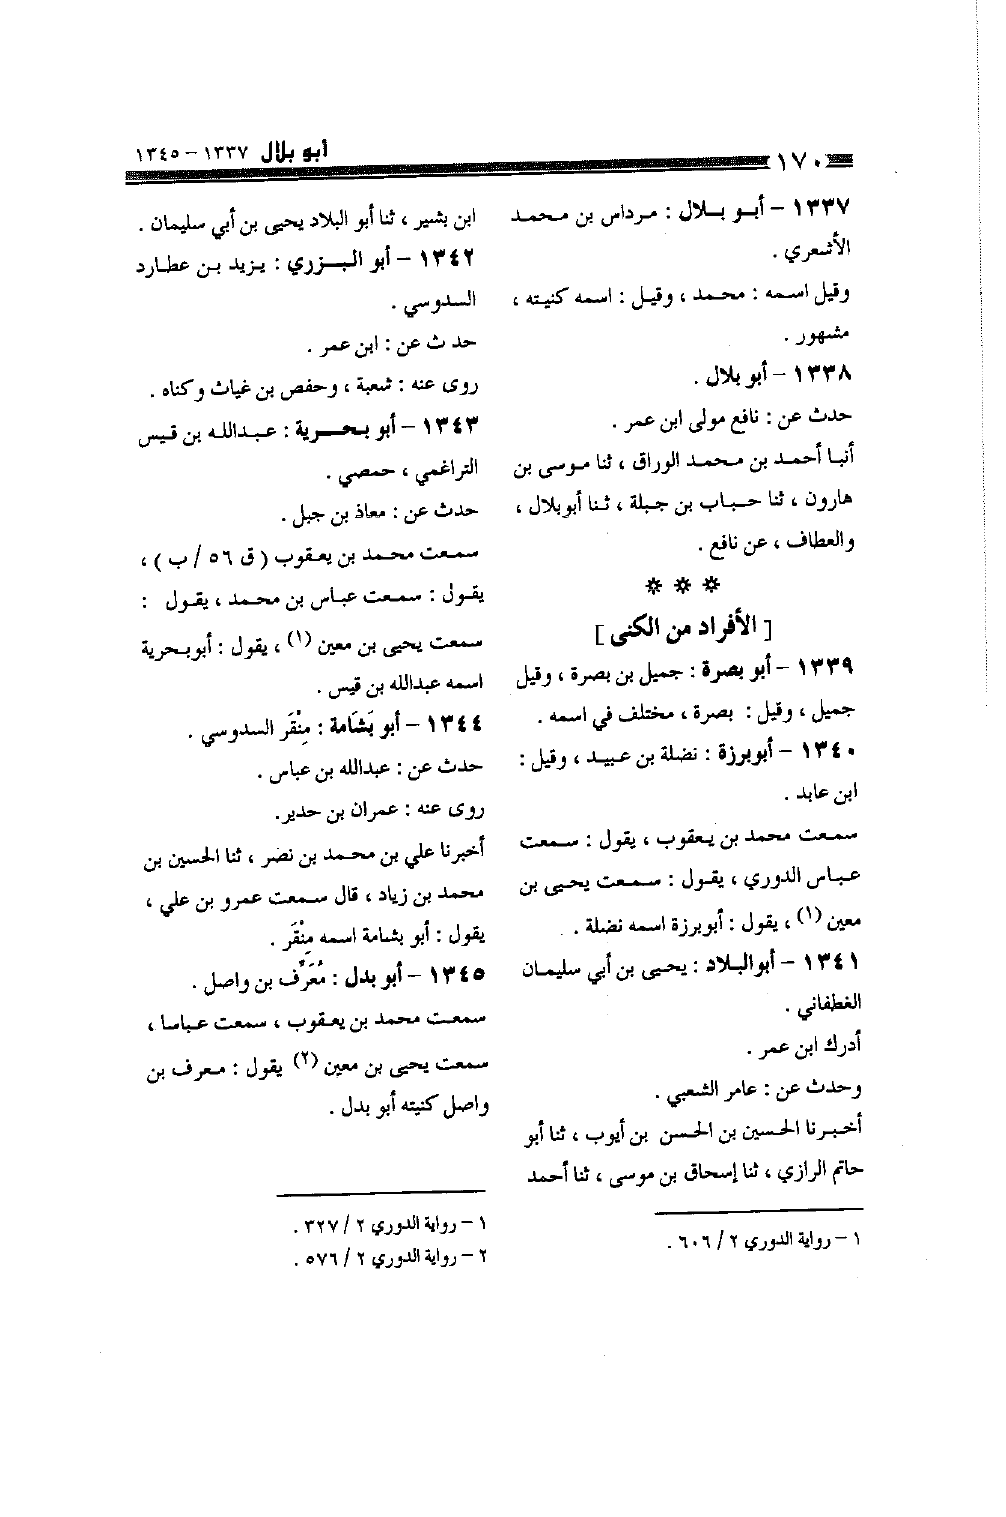 ١٧٠
أبو بلال ١٣٣٧ – ١٣٤٥
١٣٣٧ – أبو بلال : مرداس بن محمد
الأشعري .
وقيل اسمه : محمد ، وقيل : اسمه كنيته ،
مشهور .
١٣٣٨ – أبو بلال .
حدث عن : نافع مولى ابن عمر .
أنبا أحمد بن محمد الوراق ، ثنا موسى بن
هارون ، ثنا حباب بن جبلة ، ثنا أبوبلال ،
والعطاف ، عن نافع .
* * *
[ الأفراد من الكنى ]
١٣٣٩ – أبو بصرة : جميل بن بصرة ، وقيل
جميل ، وقيل : بصرة ، مختلف في اسمه .
١٣٤٠ – أبوبرزة : نضلة بن عبيد ، وقيل :
ابن عابد .
سمعت محمد بن يعقوب ، يقول : سمعت
عباس الدوري ، يقول : سمعت يحيى بن
معين (١) ، يقول : أبوبرزة اسمه نضلة .
١٣٤١ – أبوالبلاد : يحيى بن أبي سليمان
الغطفاني .
أدرك ابن عمر .
وحدث عن : عامر الشعبي .
أخبرنا الحسين بن الحسن بن أيوب ، ثنا أبو
حاتم الرازي ، ثنا إسحاق بن موسى ، ثنا أحمد
١ – رواية الدوري ٢ / ٦٠٦ .
ابن بشير ، ثنا أبو البلاد يحيى بن أبي سليمان .
١٣٤٢ – أبو البزري : يزيد بن عطارد
السدوسي .
حدث عن : ابن عمر .
روى عنه : شعبة ، وحفص بن غياث وكناه .
١٣٤٣ – أبو بحرية : عبدالله بن قيس
التراغمي ، حمصي .
حدث عن : معاذ بن جبل .
سمعت محمد بن يعقوب ( ق ٥٦ / ب ) ،
يقول : سمعت عباس بن محمد ، يقول :
سمعت يحيى بن معين (١) ، يقول : أبوبحرية
اسمه عبدالله بن قيس .
١٣٤٤ – أبو بَشَامة : مِنْقَر السدوسي .
حدث عن : عبدالله بن عباس .
روى عنه : عمران بن حدير.
أخبرنا علي بن محمد بن نصر ، ثنا الحسين بن
محمد بن زياد ، قال سمعت عمرو بن علي ،
يقول : أبو بشامة اسمه مِنْقَر .
١٣٤٥ – أبو بدل : مُعَرِّف بن واصل .
سمعت محمد بن يعقوب ، سمعت عباسا ،
سمعت يحيى بن معين (٢) يقول : معرف بن
واصل كنيته أبو بدل .
١ – رواية الدوري ٢ / ٣٢٧ .
٢ – رواية الدوري ٢ / ٥٧٦ .